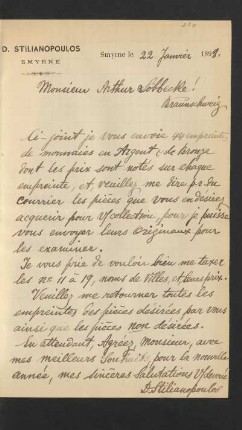 D. STILIANOPOULOS
SMYRNE
Smyrne le 22 Janvier 189
Monsieur Arthur Löbbeke!
Braunschweig
Ci-joint je vous envoie empreintes
de monnaies en Argent, & bronze
dont les prix sont notés sur chaque
empreinte, et veuillez me dire par du
courrier les pièces que vous en désirez
acquerir pour v/ collection, pour je puisse
vous envoyer leurs Originaux pour
les examiner.
Je vous prie de vouloir bien me taxer
les nos 11 à 19, noms de villes, et leurs prix.
Veuillez me retourner toutes les
empreintes des pièces désirées par vous
ainsi que les pièces non desirées.
En attendant, Agréez, Monsieur, avec
mes meilleurs Souhaits pour la nouvelle
année, mes sincères salutations
D. Stilianopoulos